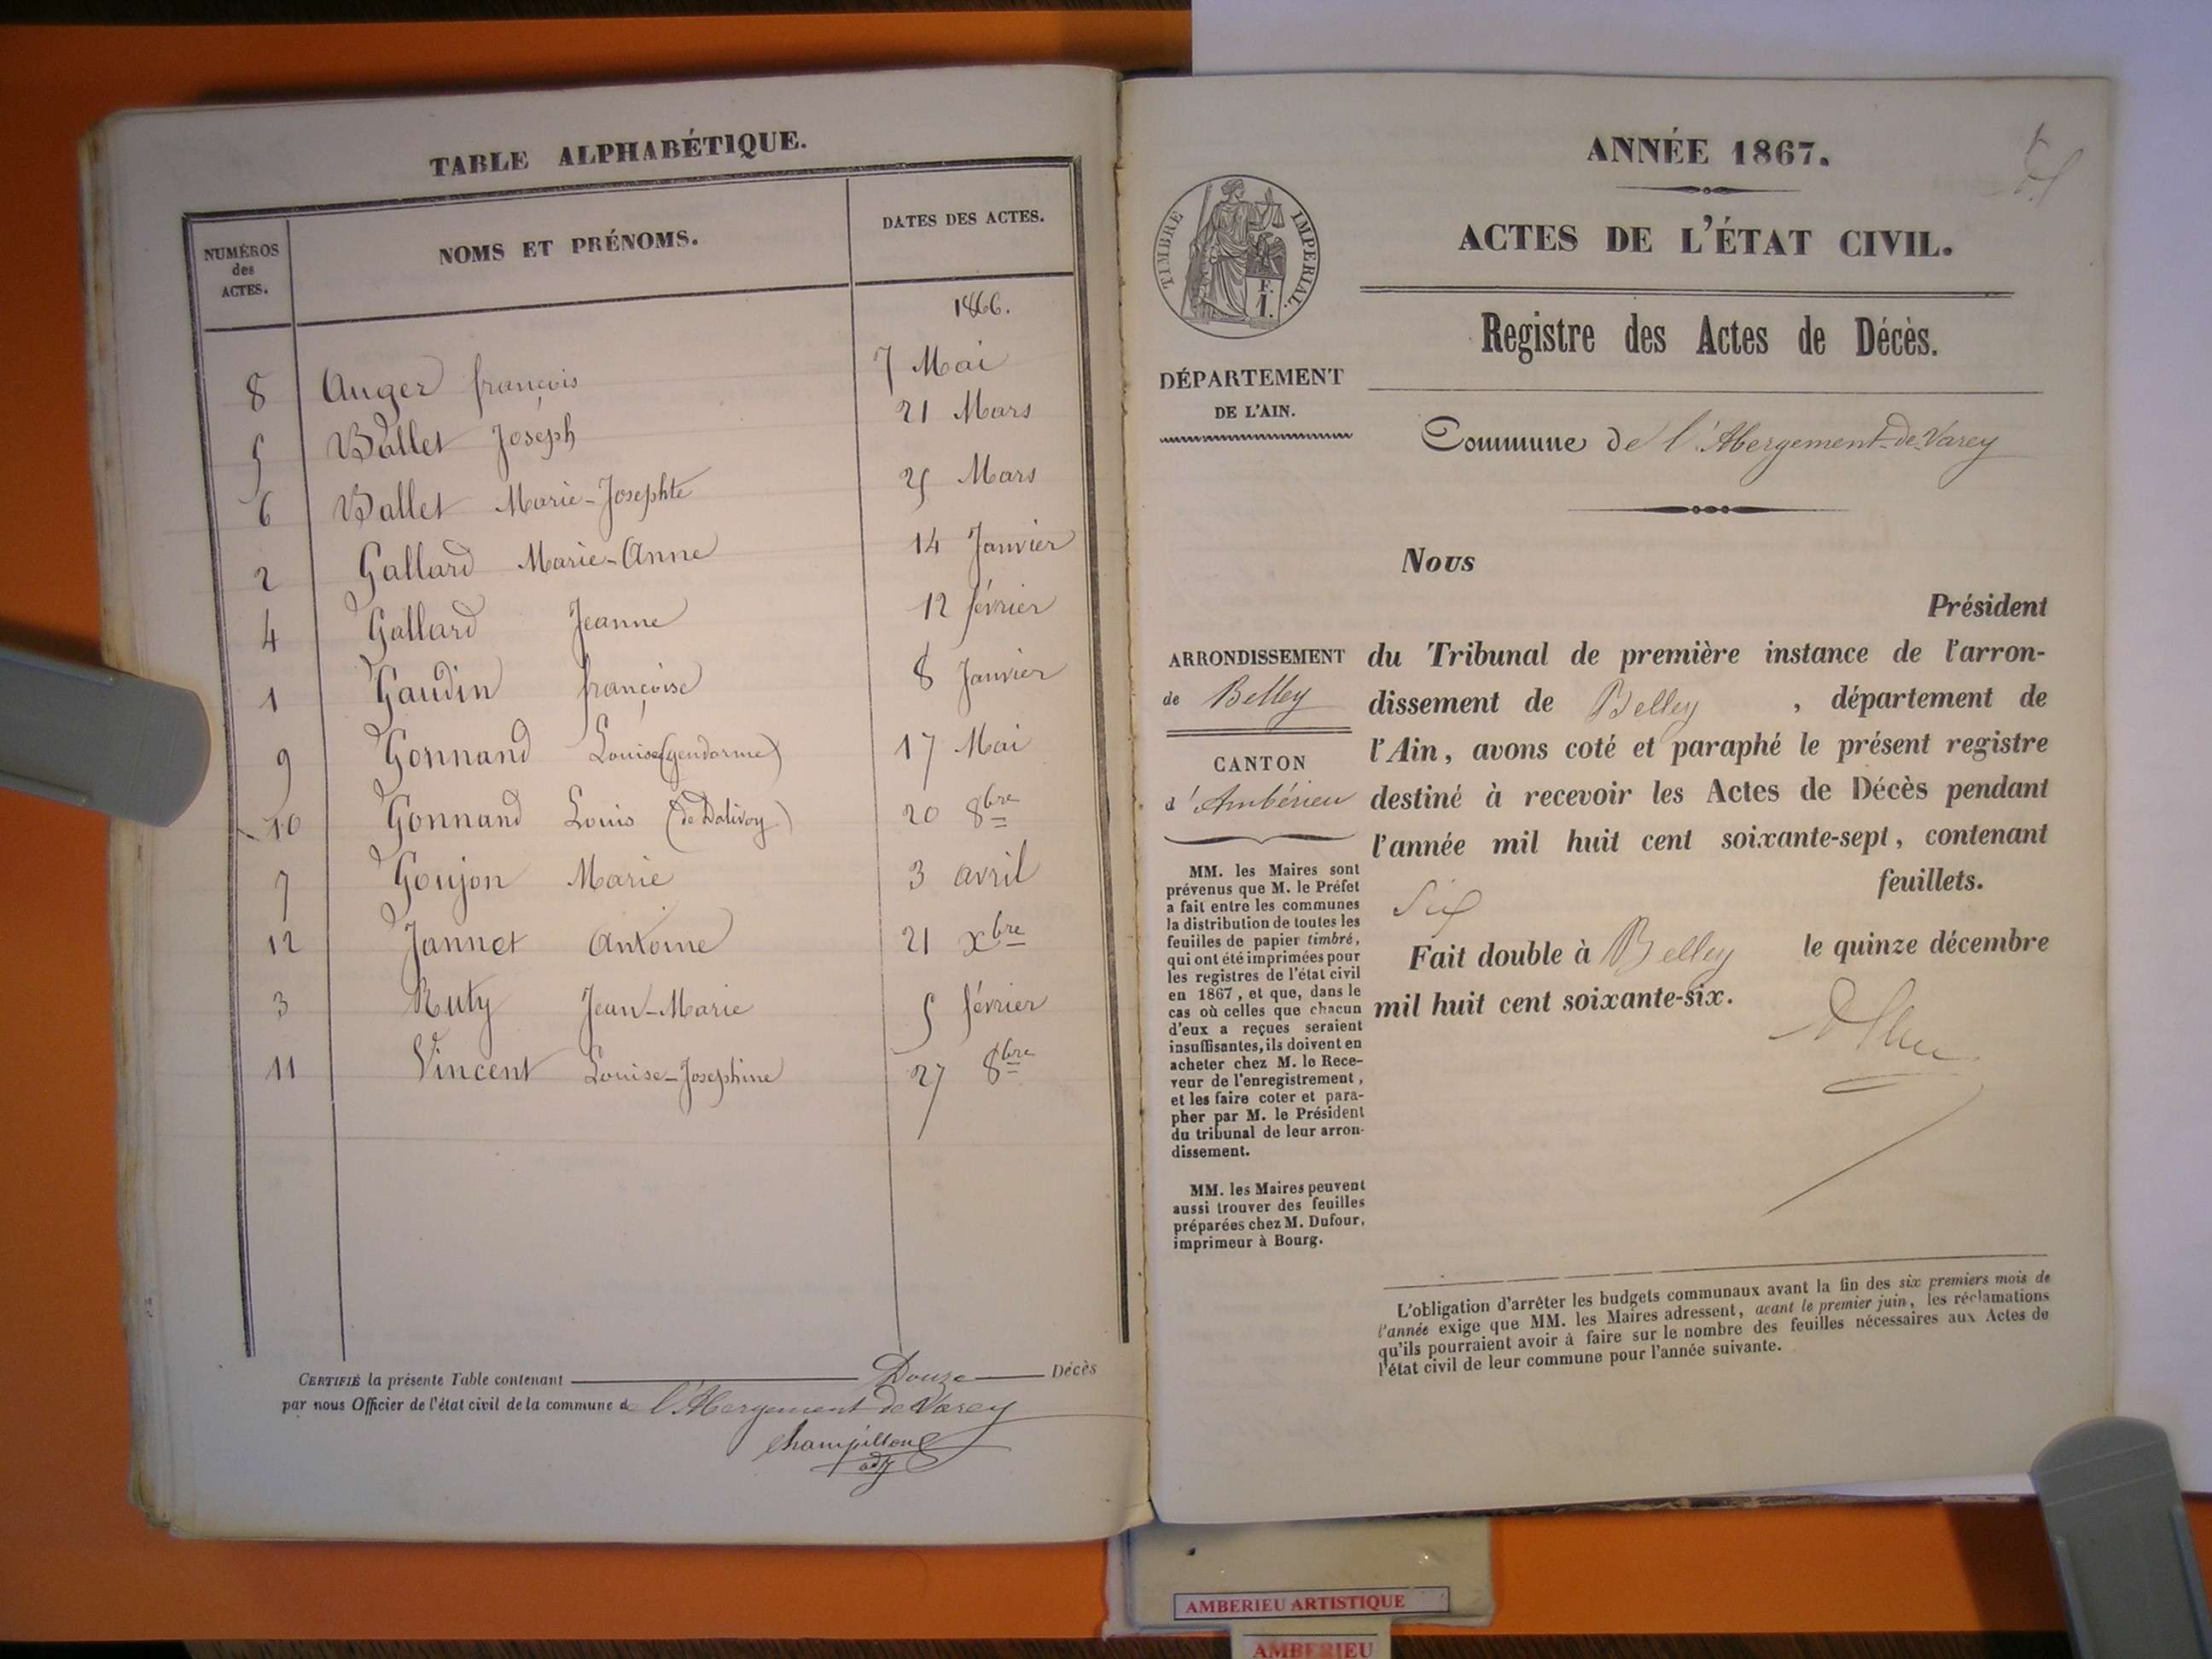 TABLE ALPHABÉTIQUE.
NUMÉROS des ACTES. NOMS ET PRÉNOMS. DATES DES ACTES.
1866.
8 Auger françois 7 Mai
5 Ballet Joseph 21 Mars
6 Ballet Marie-Josephte 25 Mars
2 Gallard Marie-Anne 14 Janvier
4 Gallard Jeanne 12 février
1 Gaudin françoise 8 Janvier
9 Gonnand Louis (gendarme) 17 Mai
10 Gonnand Louis (de Dalivoy) 20 8bre
7 Goujon Marie 3 avril
12 Jannet Antoine 21 xbre
3 Ruty Jean-Marie 5 février
11 Vincent Louise-Josephine 27 8bre
CERTIFIÉ la présente Table contenant Douze Décès
par nous Officier de l'état civil de la commune de l'Abergement de Varey
Champillon
adj
ANNÉE 1867.
ACTES DE L'ÉTAT CIVIL.
TIMBRE IMPERIAL.
F.
1.
Registre des Actes de Décès.
DÉPARTEMENT
DE L'AIN.
Commune de l'Abergement-de-Varey
ARRONDISSEMENT
de Belley
CANTON
d'Ambérieu
MM. les Maires sont
prévenus que M. le Préfet
a fait entre les communes
la distribution de toutes les
feuilles de papier timbré,
qui ont été imprimées pour
les registres de l'état civil
en 1867, et que, dans le
cas où celles que chacun
d'eux a reçues seraient
insuffisantes, ils doivent en
acheter chez M. le Rece-
veur de l'enregistrement,
et les faire coter et para-
pher par M. le Président
du tribunal de leur arron-
dissement.
MM. les Maires peuvent
aussi trouver des feuilles
préparées chez M. Dufour,
imprimeur à Bourg.
Nous
Président
du Tribunal de première instance de l'arron-
dissement de Belley , département de
l'Ain, avons coté et paraphé le présent registre
destiné à recevoir les Actes de Décès pendant
l'année mil huit cent soixante-sept, contenant
Six feuillets.
Fait double à Belley le quinze décembre
mil huit cent soixante-six.
L'obligation d'arrêter les budgets communaux avant la fin des six premiers mois de
l'année exige que MM. les Maires adressent, avant le premier juin, les réclamations
qu'ils pourraient avoir à faire sur le nombre des feuilles nécessaires aux Actes de
l'état civil de leur commune pour l'année suivante.
AMBERIEU ARTISTIQUE
AMBERIEU